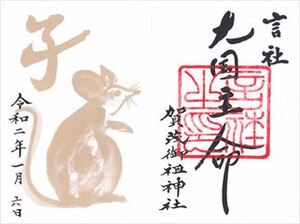 言社
大国主命
賀茂御祖神社
子
令和二年一月六日